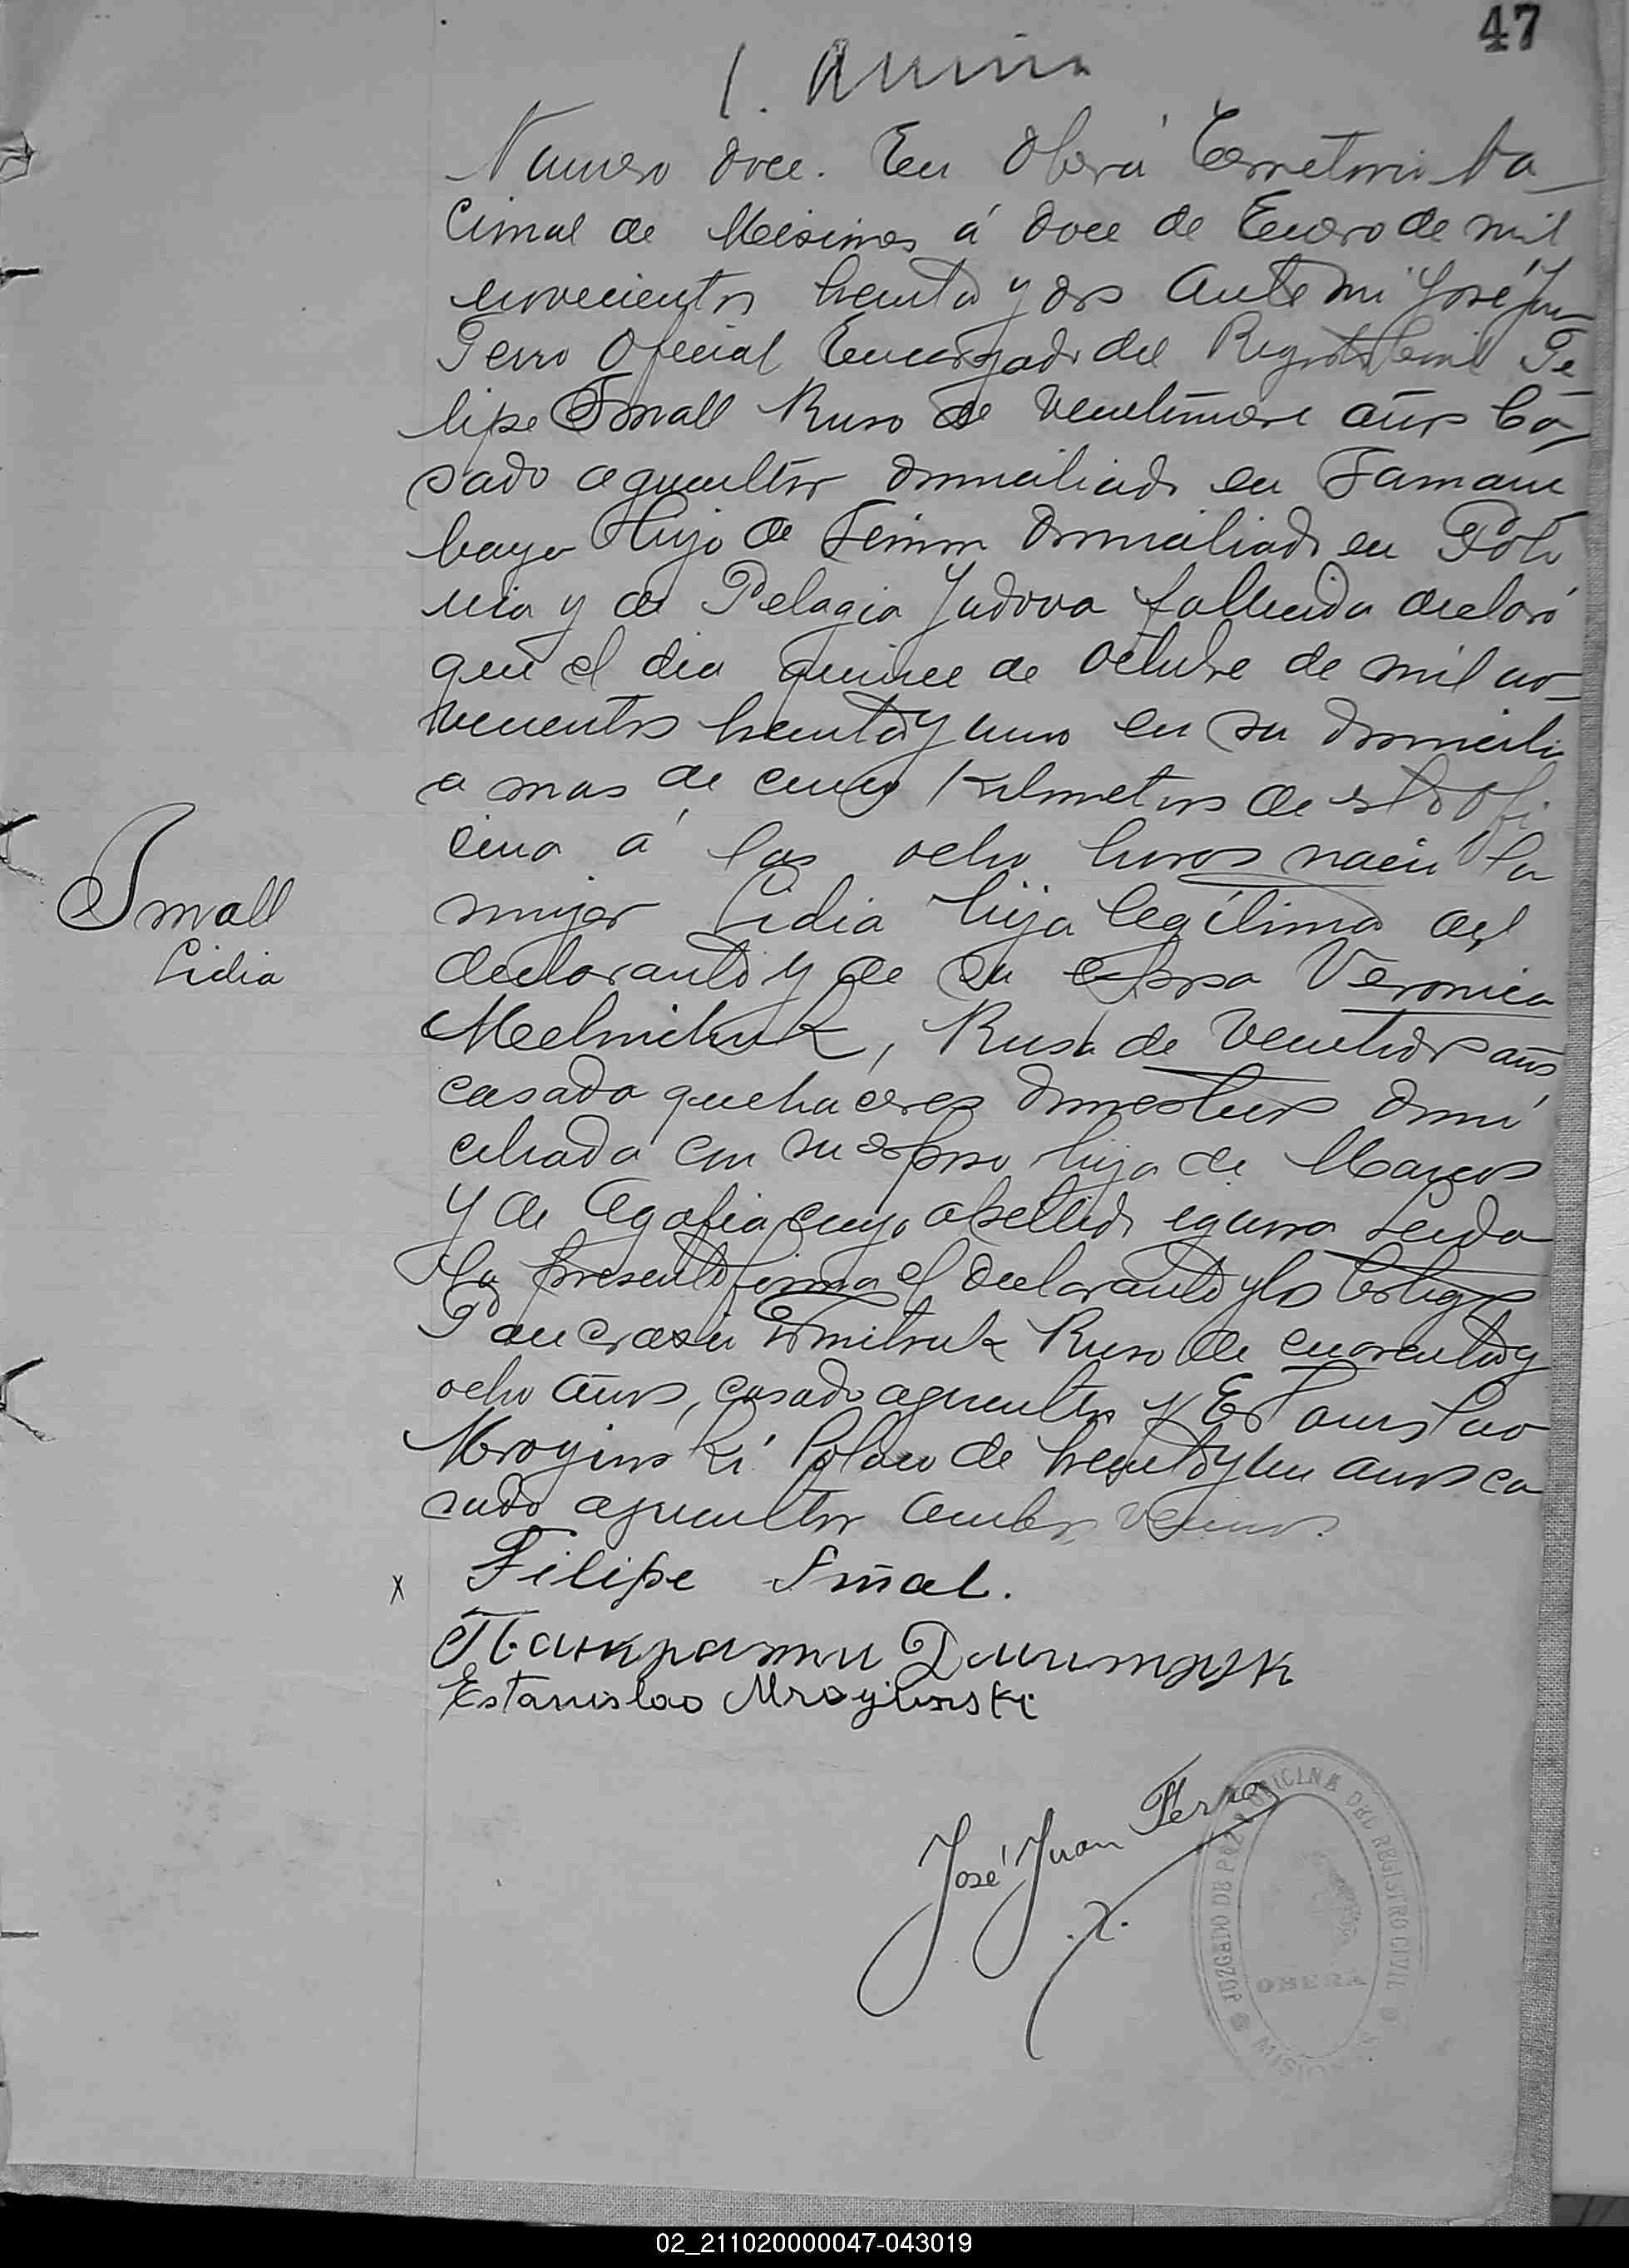 47
Numero doce. En Oberá Territorio Na
cional de Misiones á doce de Enero de mil
novecientos treinta y dos ante mi José Juan
Ferro Oficial Encargado del Registro Civil Fe
lipe Small Ruso de veintinueve años Ca
sado agricultor domiciliado en Tamam
bayo Hijo de Simon domiciliado en Polo
nia y de Pelagia Judova fallecida declaró
que el dia quince de octubre de mil no
vecientos treinta y uno en su domicilio
a mas de cinco Kilometros de esta Ofi
cina á las ocho horas nació la
mujer Lidia hija legítima del
Small
Lidia
declarante y de su esposa Veronica
Melnichuk, Rusa de veintidos años
casada quehaceres domesticos domi
ciliada con su esposo hija de Marcos
y de Agafia cuyo apellido ignora Leida
la presente firma el declarante y los testigos
Pancrasio Dmitruk Ruso de cuarenta y
ocho años, casado agricultor y Estanislao
Mroginski Polaco de treinta y un años ca
sado agricultor ambos vecinos.
x Filipe Smal.
Панкрати Дмитрук
Estanislao Mroginski
José Juan Ferro
JUZGADO DE PAZ Y OFICINA DEL REGISTRO CIVIL
OBERA
MISIONES
02_211020000047-043019